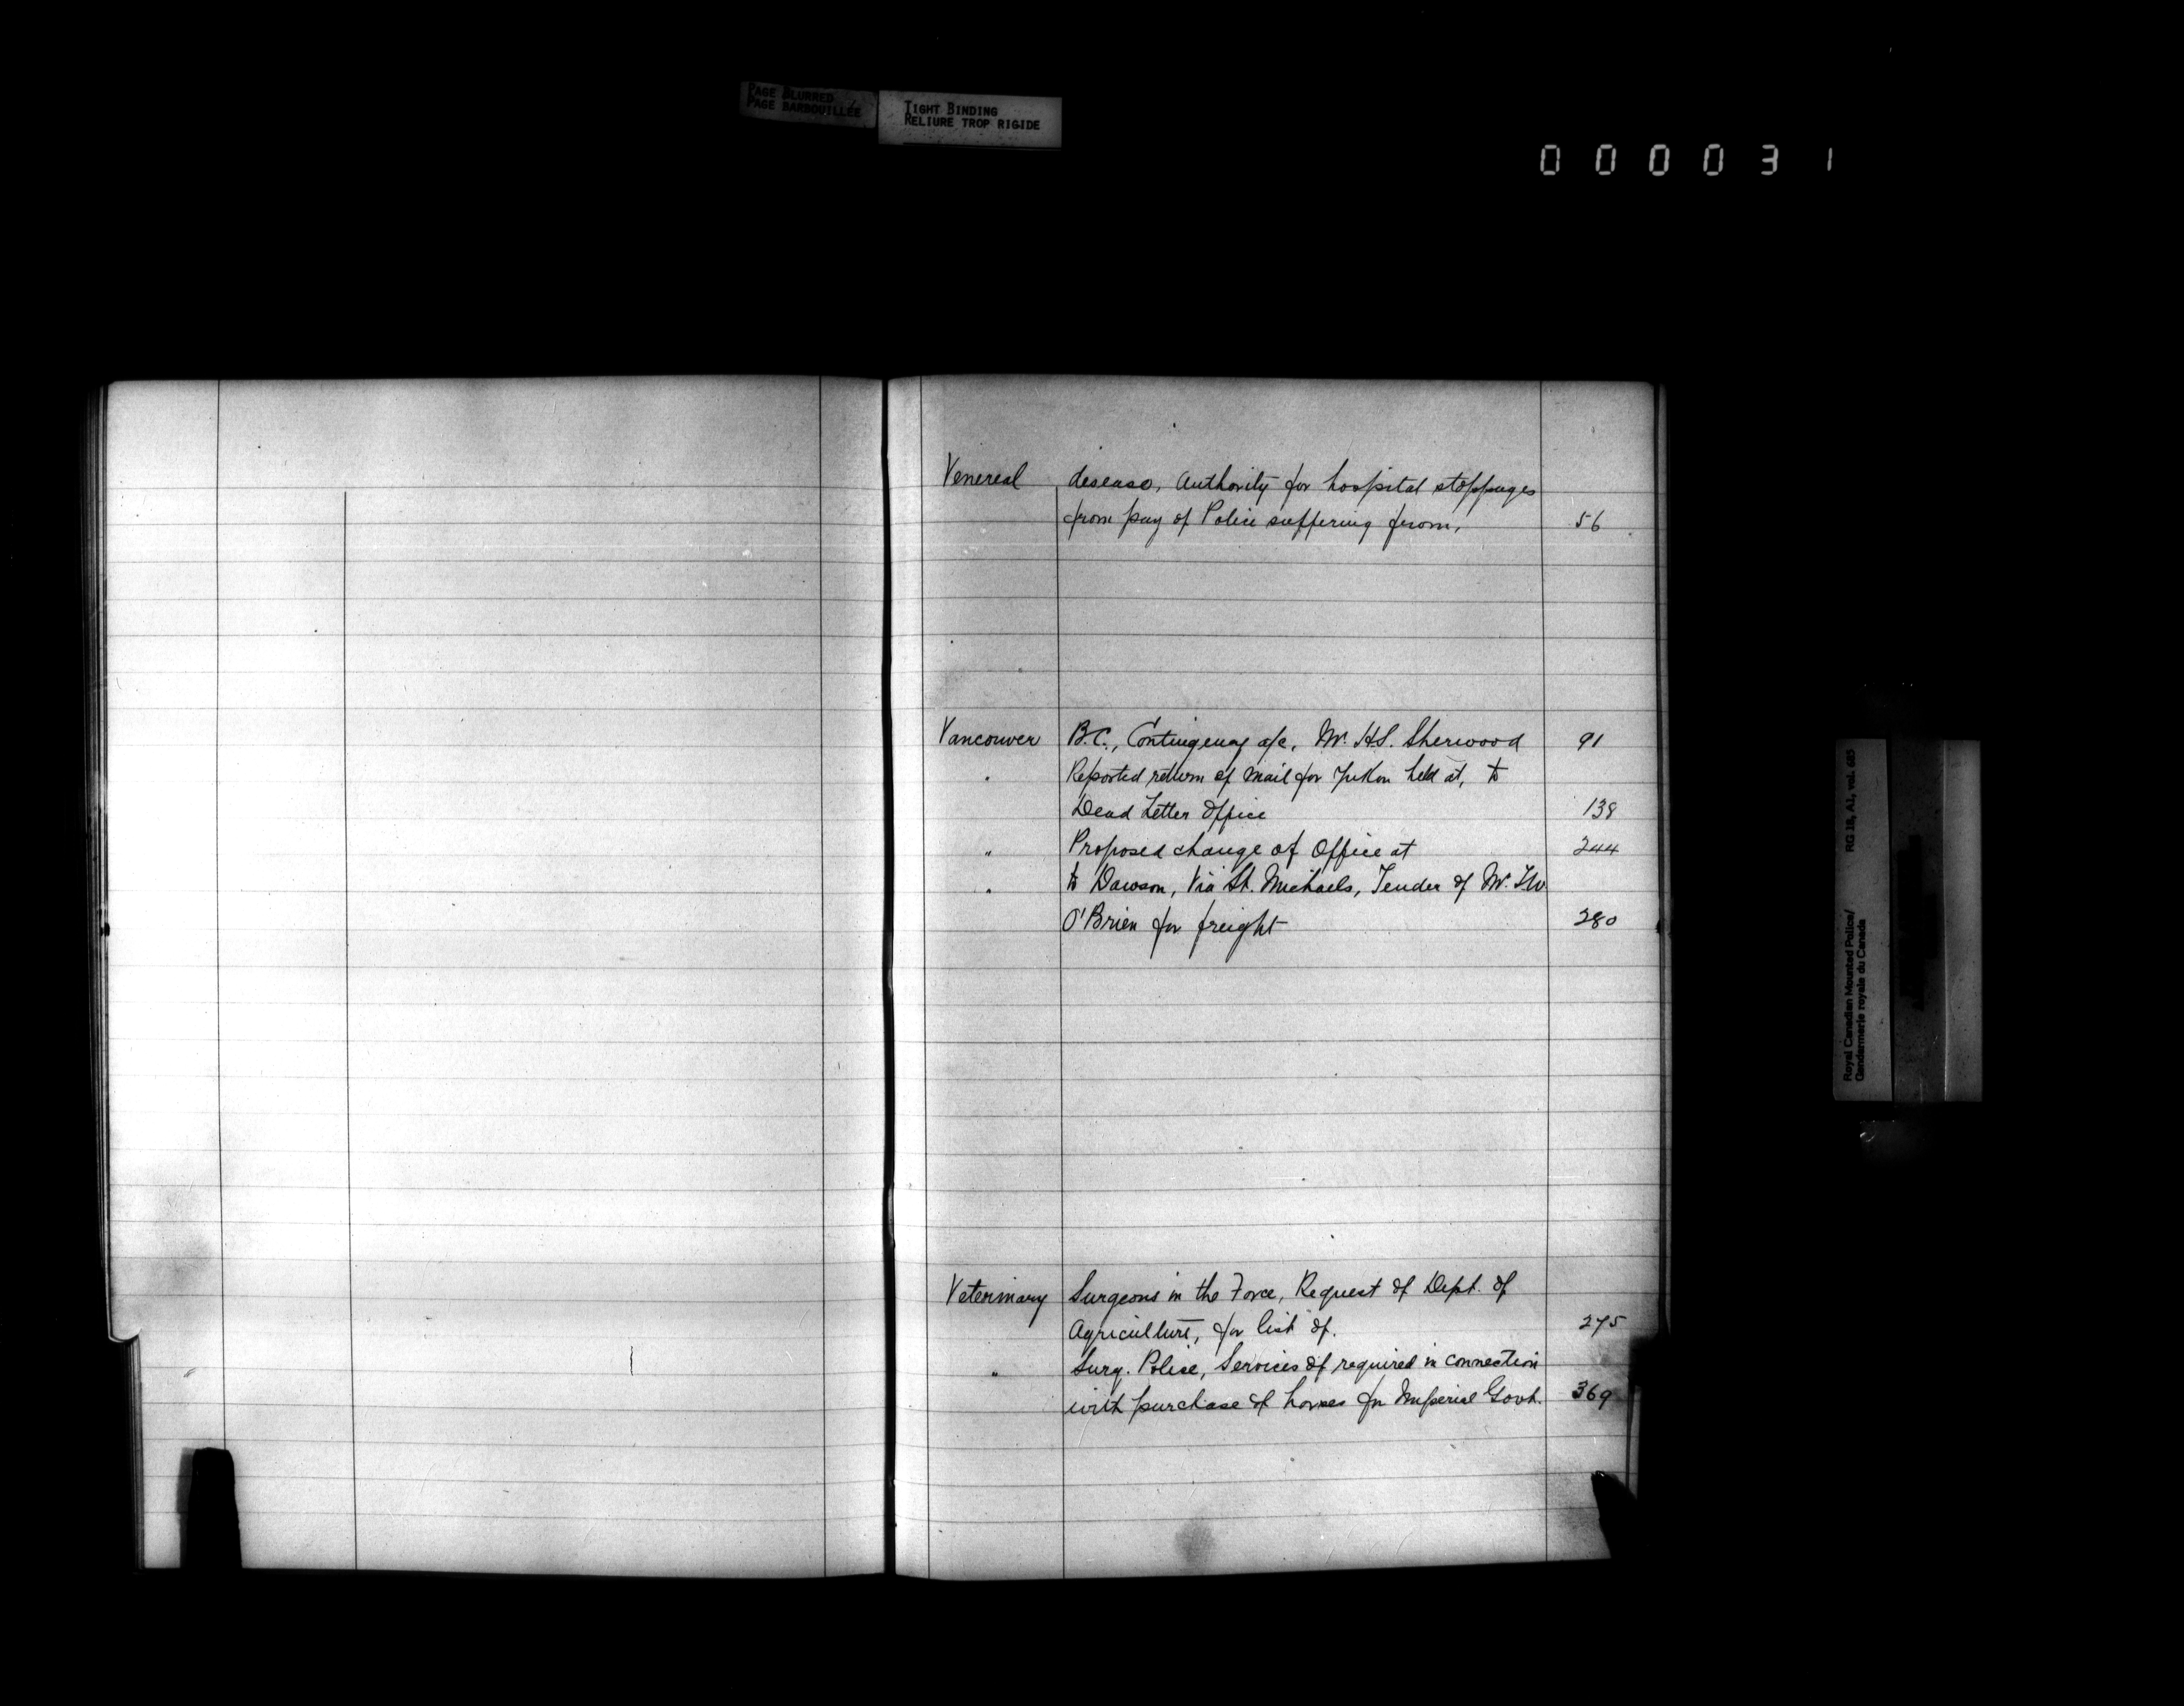 PAGE BLURRED
PAGE BARBOUILLÉE
TIGHT BINDING
RELIURE TROP RIGIDE
000031
Venereal disease, Authority for hospital stoppages
from pay of Police suffering from, 56
Vancouver B.C., Contingency a/c, Mr. H.S. Sherwood 91
" Reported return of Mail for Yukon held at, to
Dead Letter Office 138
" Proposed change of Office at 244
" to Dawson, Via St. Michaels, Tender of Mr.
O'Brien for freight 280
Veterinary Surgeons in the Force, Request of Dept. of
Agriculture, for list of. 275
" Surg. Police, Services of required in connection
with purchase of horses for Imperial Govt. 369
Royal Canadian Mounted Police/ RG 18, A1, vol. 685
Gendarmerie royale du Canada